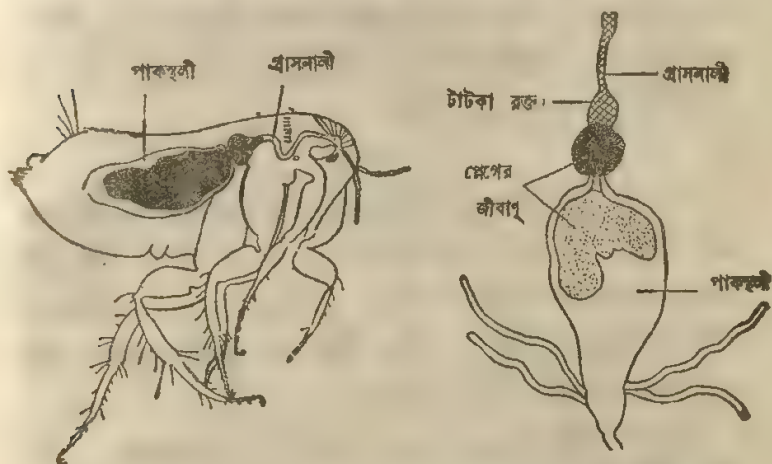 পাকস্থলী
গ্রাসনালী
গ্রাসনালী
টাটকা রক্ত
প্লেগের
জীবাণু
পাকস্থলী